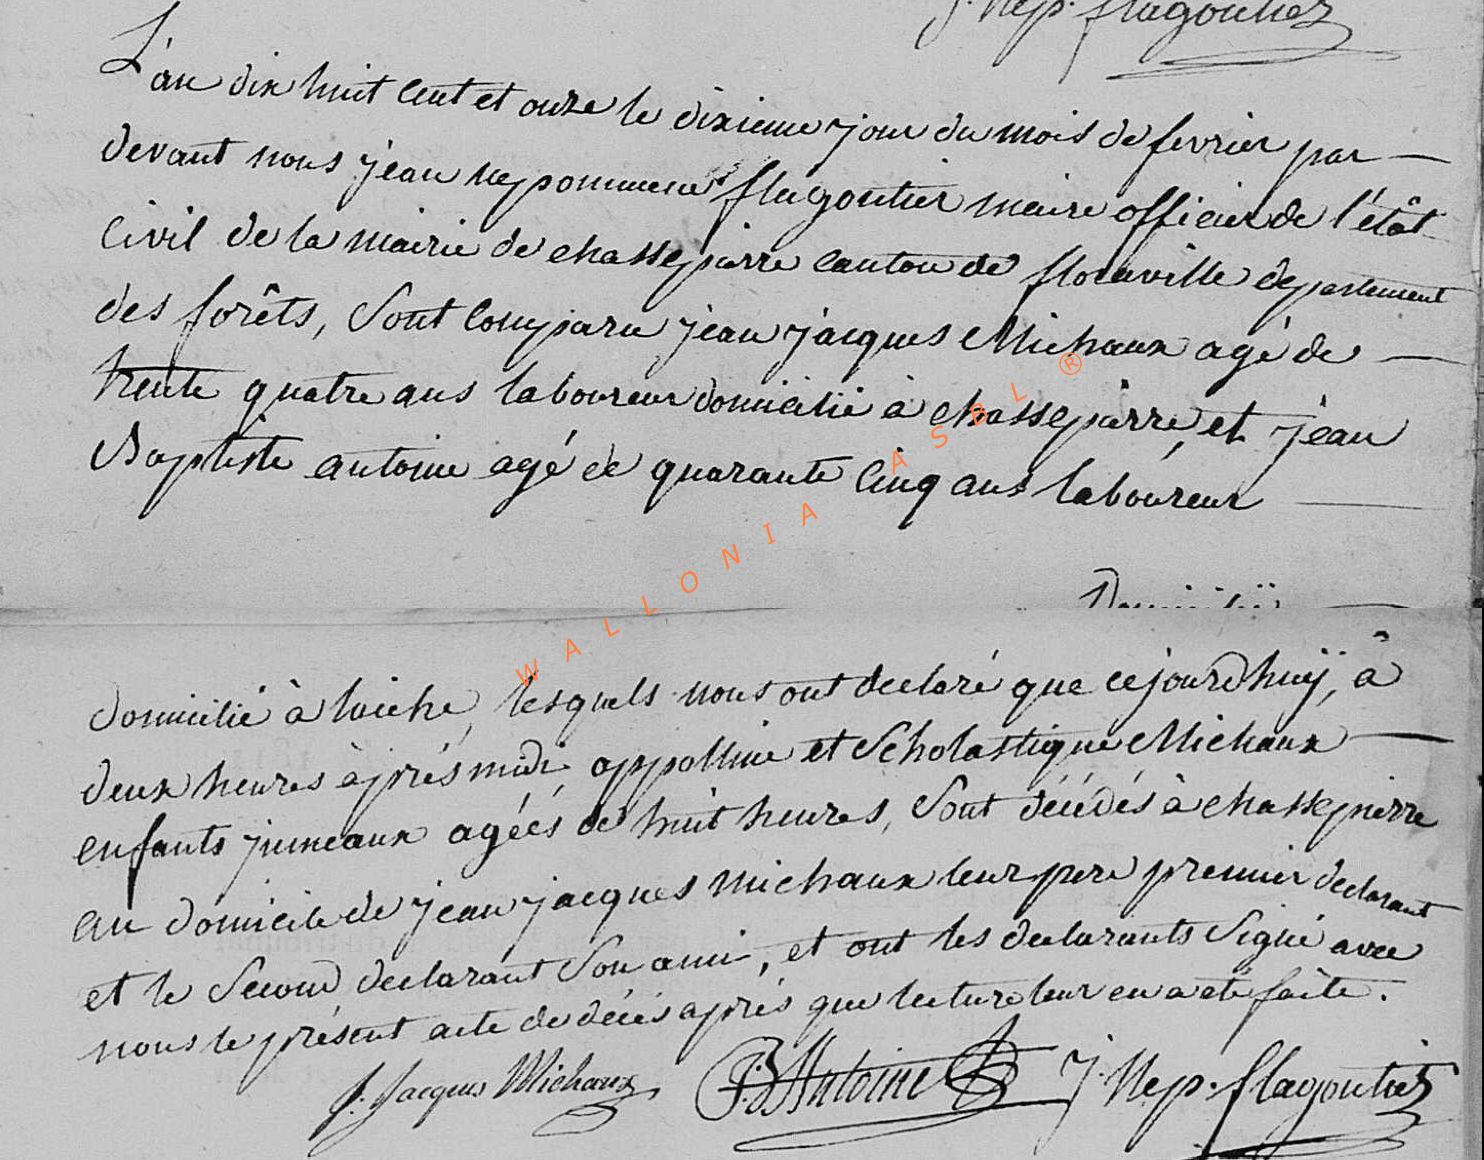 J. Nep. flagoutier
L'an dix huit cent et onze le dixieme jour du mois de fevrier par
devant nous jean nepomucene flagoutier maire officier de l'étât
civil de la mairie de chassepierre canton de florenville departement
des forêts, sont comparu jean jacques Michaux agé de
trente quatre ans laboureur domicilié à chassepierre, et jean
Baptiste antoine agé de quarante cinq ans laboureur
Domicilié
domicilié à laiche, lesquels nous ont declaré que cejourdhuÿ, à
deux heures àprés midi appolline et Scholastique Michaux
enfants jumeaux agéés de huit heures, sont décédés à chassepierre
au domicile de jean jacques michaux leur pere premier declarant
et le second declarant son ami, et ont les declarants signé avec
nous le présent acte de décés aprés que lecture leur en a eté faite.
J. Jacques Michaux JB Antoine J. Nep. flagoutier
WALLONIA ASBL ®